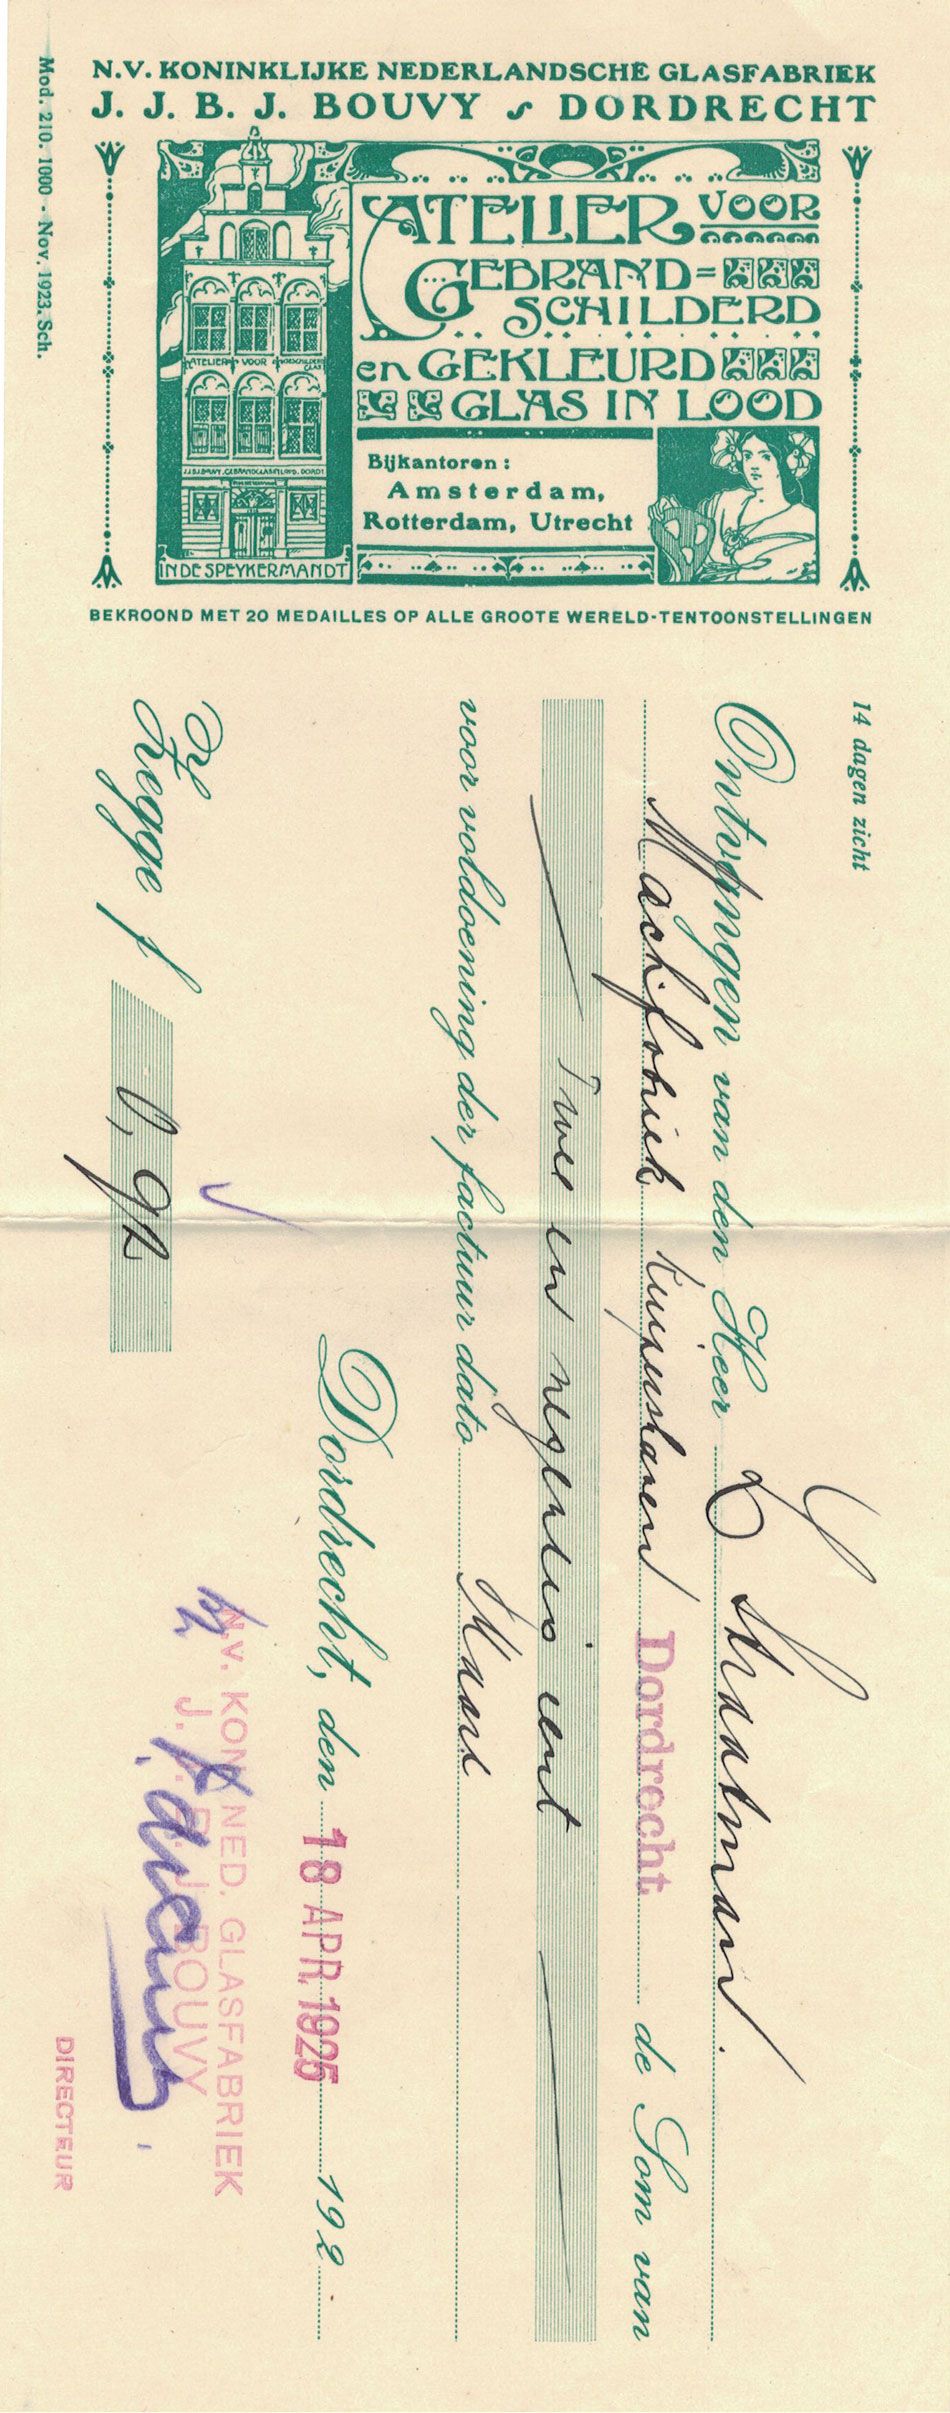 N.V. KONINKLIJKE NEDERLANDSCHE GLASFABRIEK
J. J. B. J. BOUVY DORDRECHT
ATELIER VOOR
GEBRAND=
SCHILDERD
en GEKLEURD
GLAS IN LOOD
ATELIER VOOR
Bijkantoren:
Amsterdam,
Rotterdam, Utrecht
IN DE SPEYKERMANDT
BEKROOND MET 20 MEDAILLES OP ALLE GROOTE WERELD-TENTOONSTELLINGEN
Mod. 210. 1000 - Nov. 1923. Sch.
14 dagen zicht
Ontvangen van den Heer L Straatman.
Machfabriek Kuipershaven Dordrecht de Som van
Twee en negentig cent
voor voldoening der factuur dato Maart
Dordrecht, den 18 APR. 1925 192
Zegge f 0,92
N.V. KON. NED. GLASFABRIEK
J. J. B. J. BOUVY
DIRECTEUR